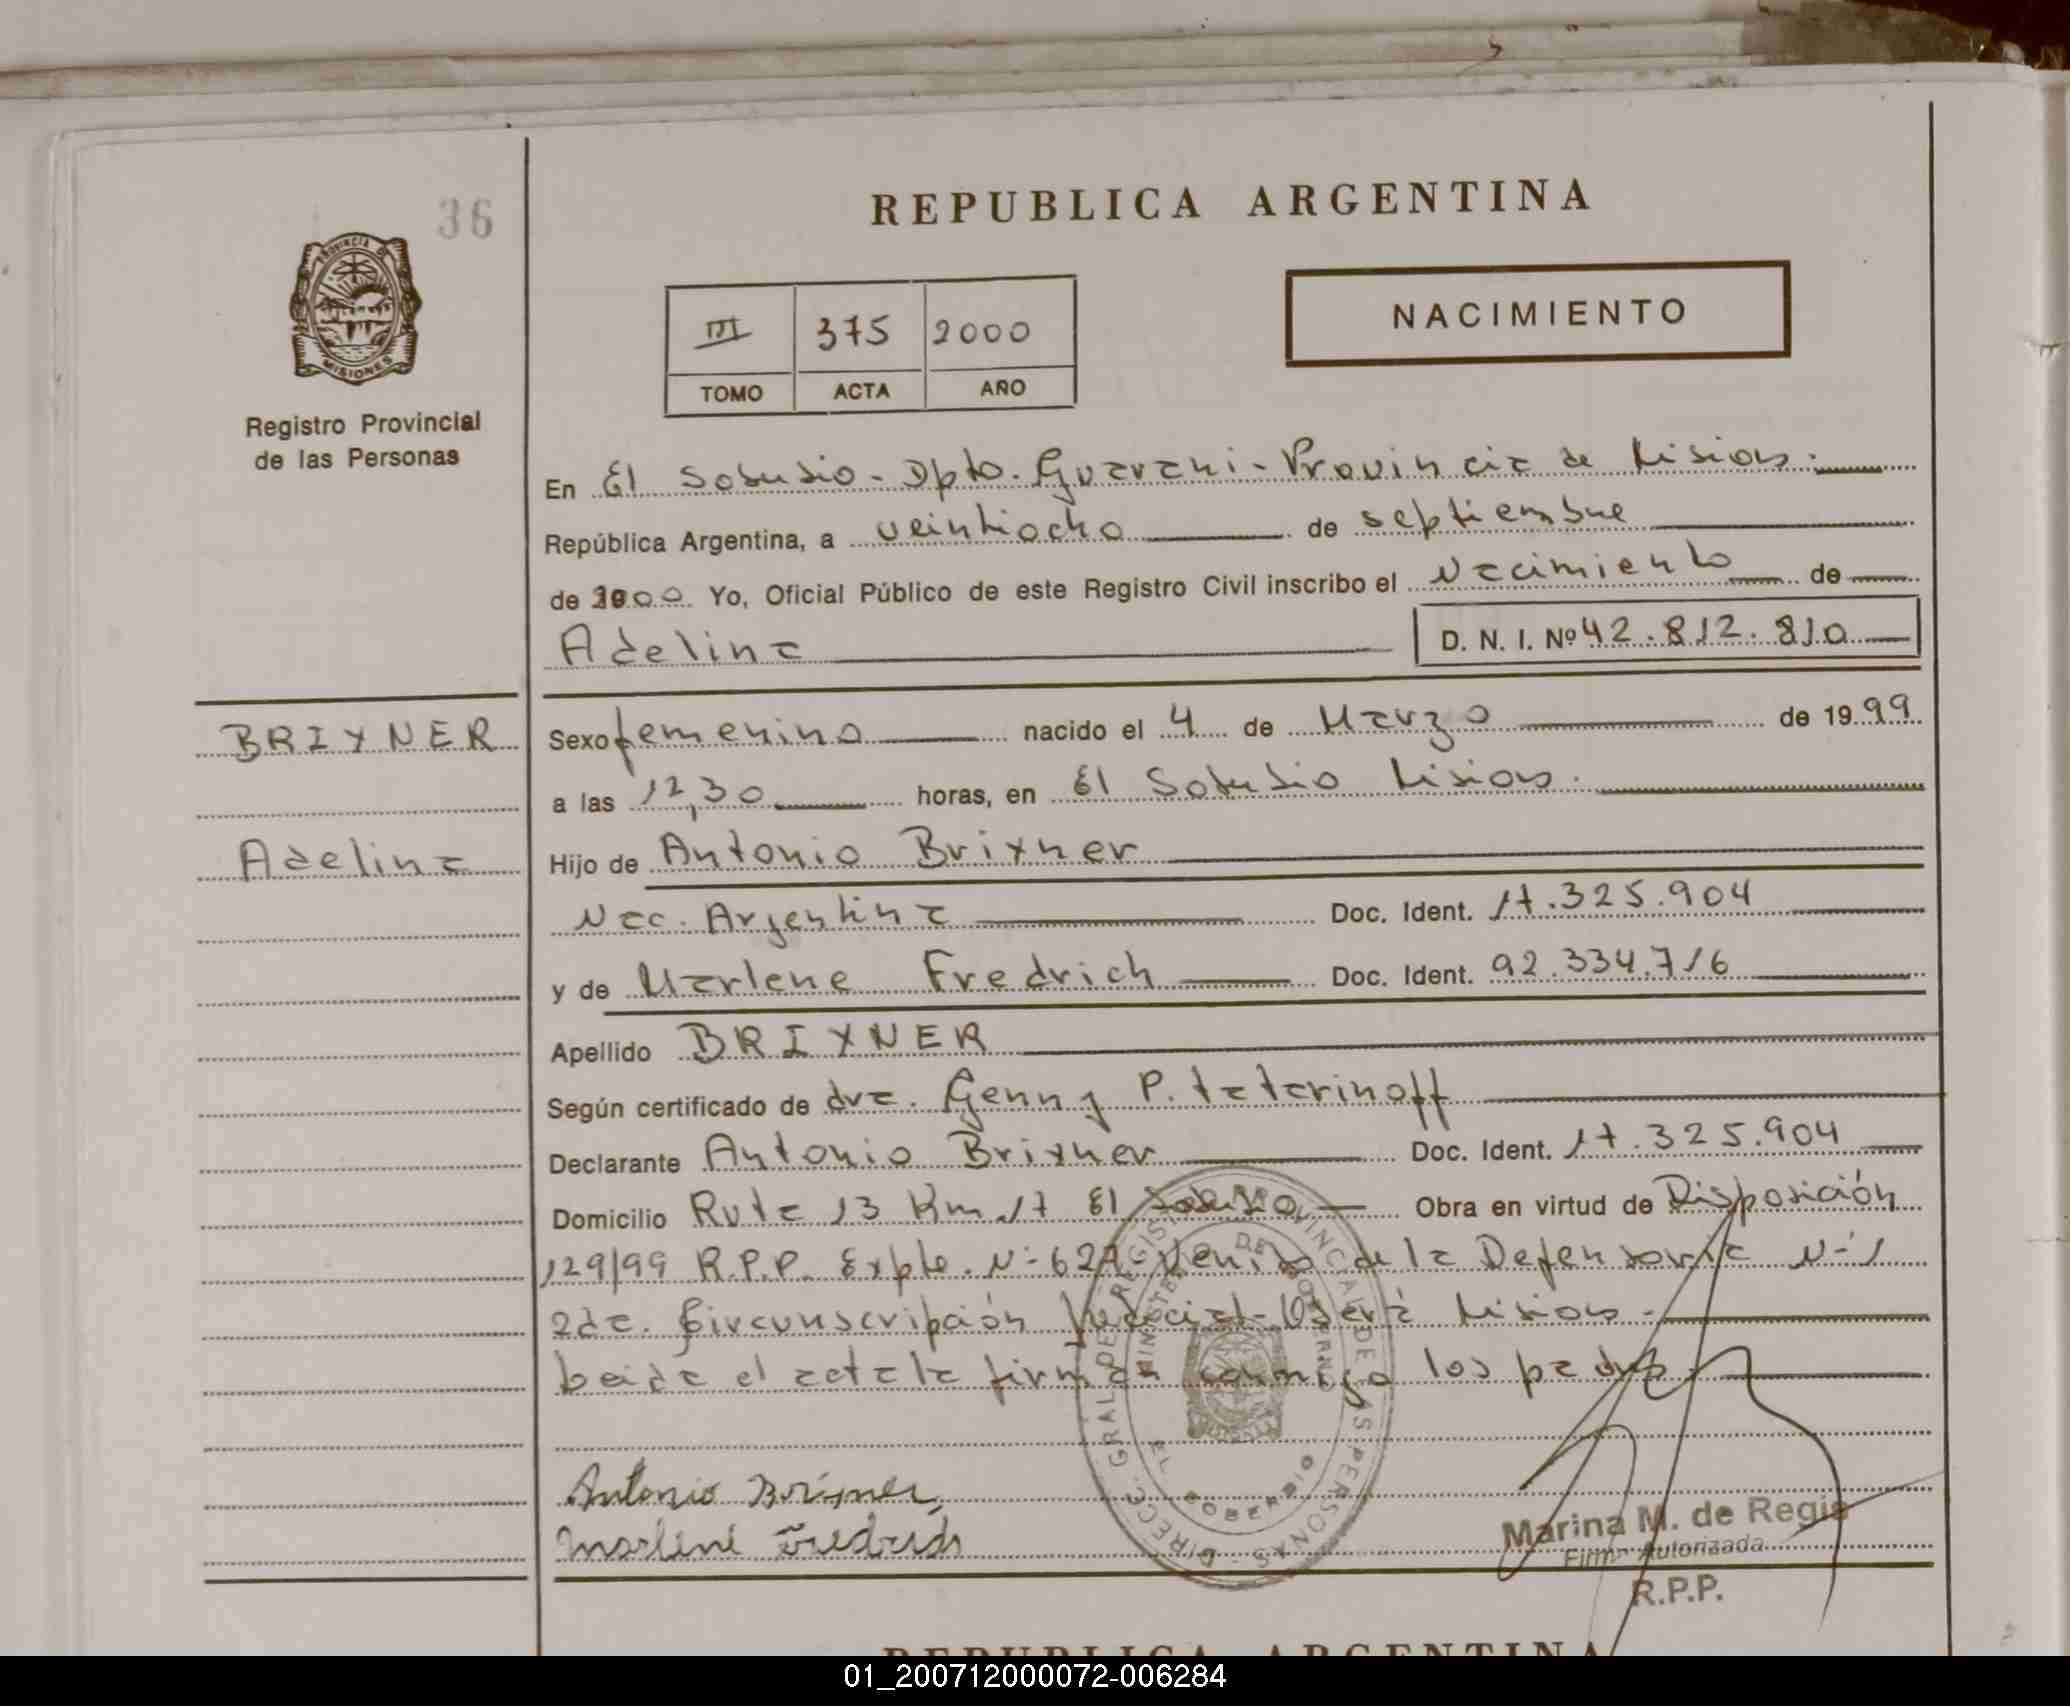 36
REPUBLICA ARGENTINA
PROVINCIA DE MISIONES
Registro Provincial
de las Personas
III 375 2000
TOMO ACTA AÑO
NACIMIENTO
En El Soberbio - Dpto. Guarani - Provincia de Misiones.
República Argentina, a veintiocho de septiembre
de 2000 Yo, Oficial Público de este Registro Civil inscribo el Nacimiento de
Adelina D. N. I. Nº 42.812.810
BRIXNER
Adelina
Sexo femenino nacido el 4 de Marzo de 1999
a las 12,30 horas, en El Soberbio Misiones.
Hijo de Antonio Brixner
Nac. Argentina Doc. Ident. 17.325.904
y de Marlene Fredrich Doc. Ident. 92.334.716
Apellido BRIXNER
Según certificado de dra. Genny P. Tatarinoff
Declarante Antonio Brixner Doc. Ident. 17.325.904
Domicilio Ruta 13 Km 17 El Soberbio Obra en virtud de Disposición
129/99 R.P.P. Expte. Nº 627 - de la Defensoria Nº 1
2da. Circunscripción Judicial - Oberá Misiones.
Leida el acta la firman conmigo los padres.
Antonio Brixner
Marlene Fredrich
DIRECC. GRAL DE REGISTRO PROVINCIAL DE LAS PERSONAS
MINISTERIO DE GOBIERNO
EL SOBERBIO
Marina M. de Regis
Firma Autorizada
R.P.P.
REPUBLICA ARGENTINA
01_200712000072-006284